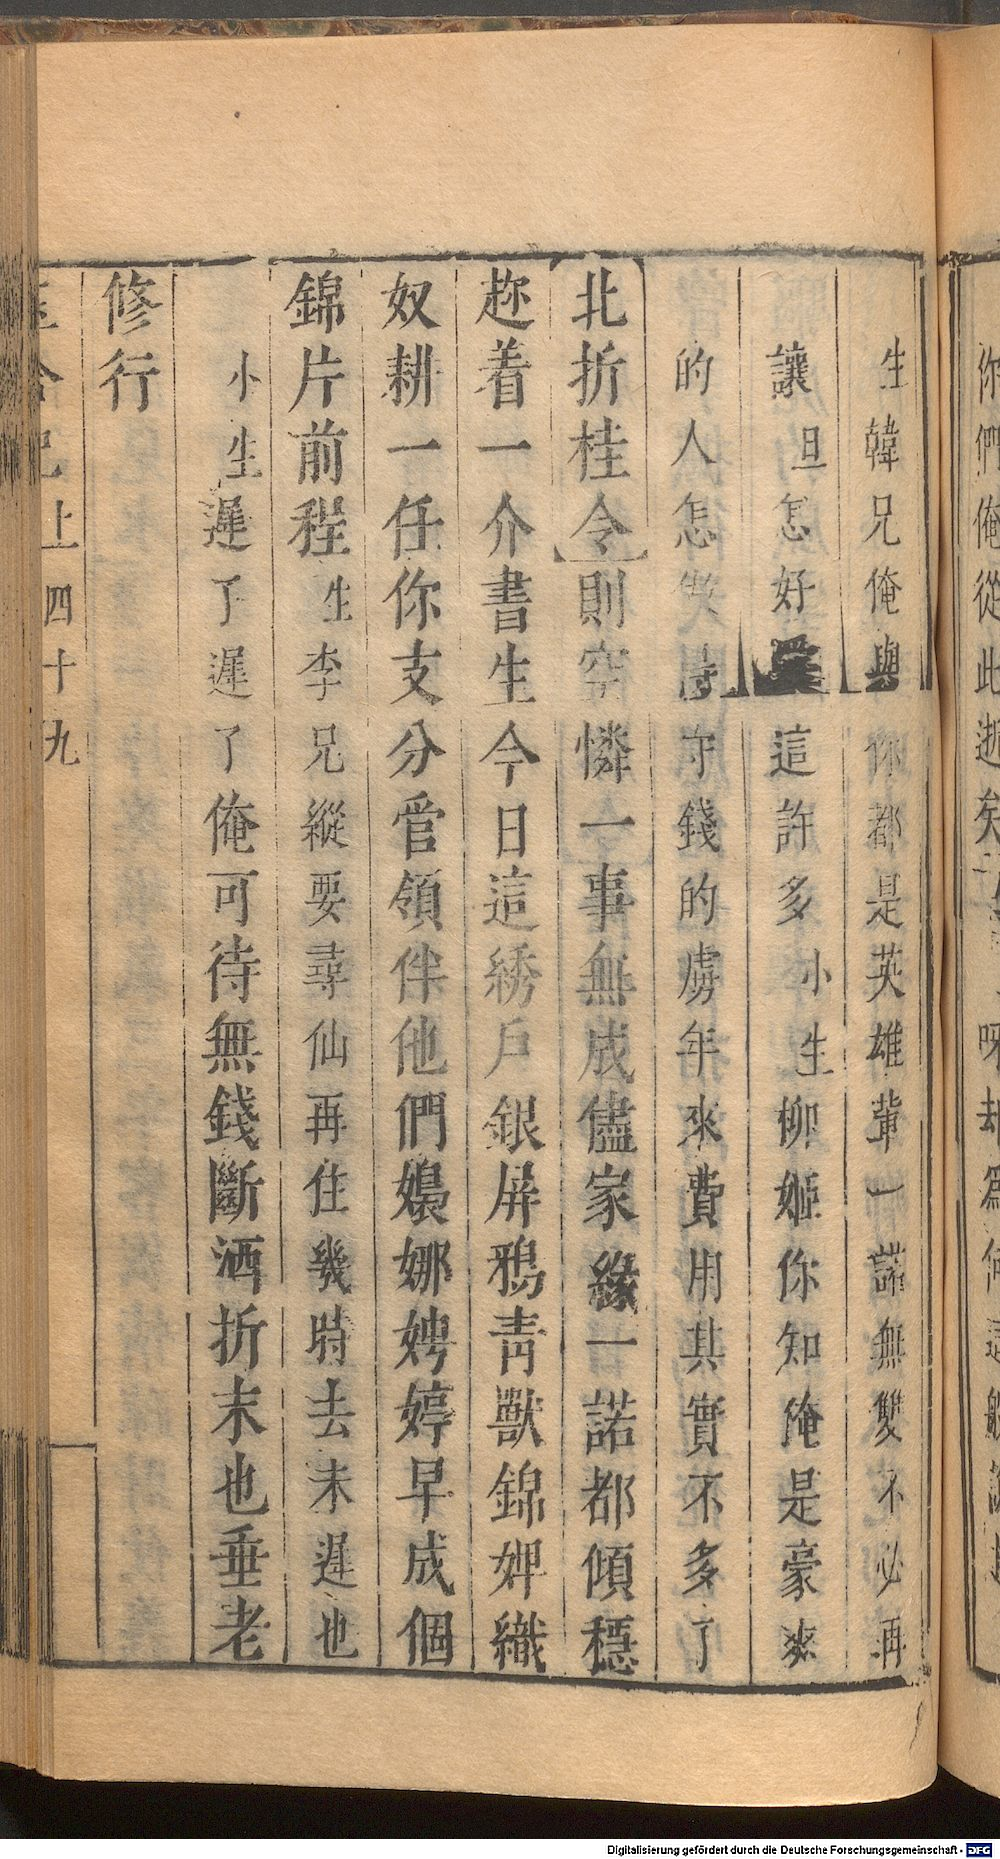 你們俺從此逝矣
生韓兄俺與你都是英雄輩一諾無雙不必再
讓旦怎好 這許多小生柳姬你知俺是豪爽
的人怎守錢的虜年來費用其實不多了
北折桂令則空憐一事無成儘家緣一諾都傾穩
趂着一介書生今日這綉戶銀屏鴉青獸錦婢織
奴耕一任你支分管領伴他們嬝娜娉婷早成個
錦片前程生李兄縱要尋仙再住幾時去未遲也
小生遲了遲了俺可待無錢斷酒折末也垂老
修行
上四十九
Digitalisierung gefördert durch die Deutsche Forschungsgemeinschaft - DFG